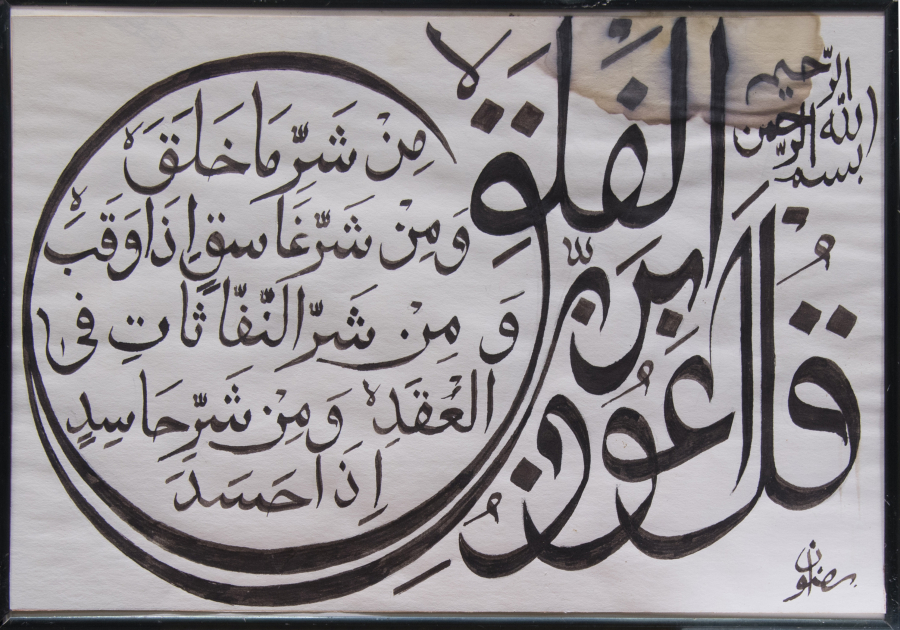 بسم الله الرحمن الرحيم
قُلْ اَعُوذُ
بِرَبِّ
الْفَلَقِ
مِنْ شَرِّ مَا خَلَقَ
وَ مِنْ شَرِّ غَاسِقٍ اِذَا وَقَبَ
وَ مِنْ شَرِّ النَّفَّاثَاتِ فِى
الْعُقَدِ وَ مِنْ شَرِّ حَاسِدٍ
اِذَا حَسَدَ